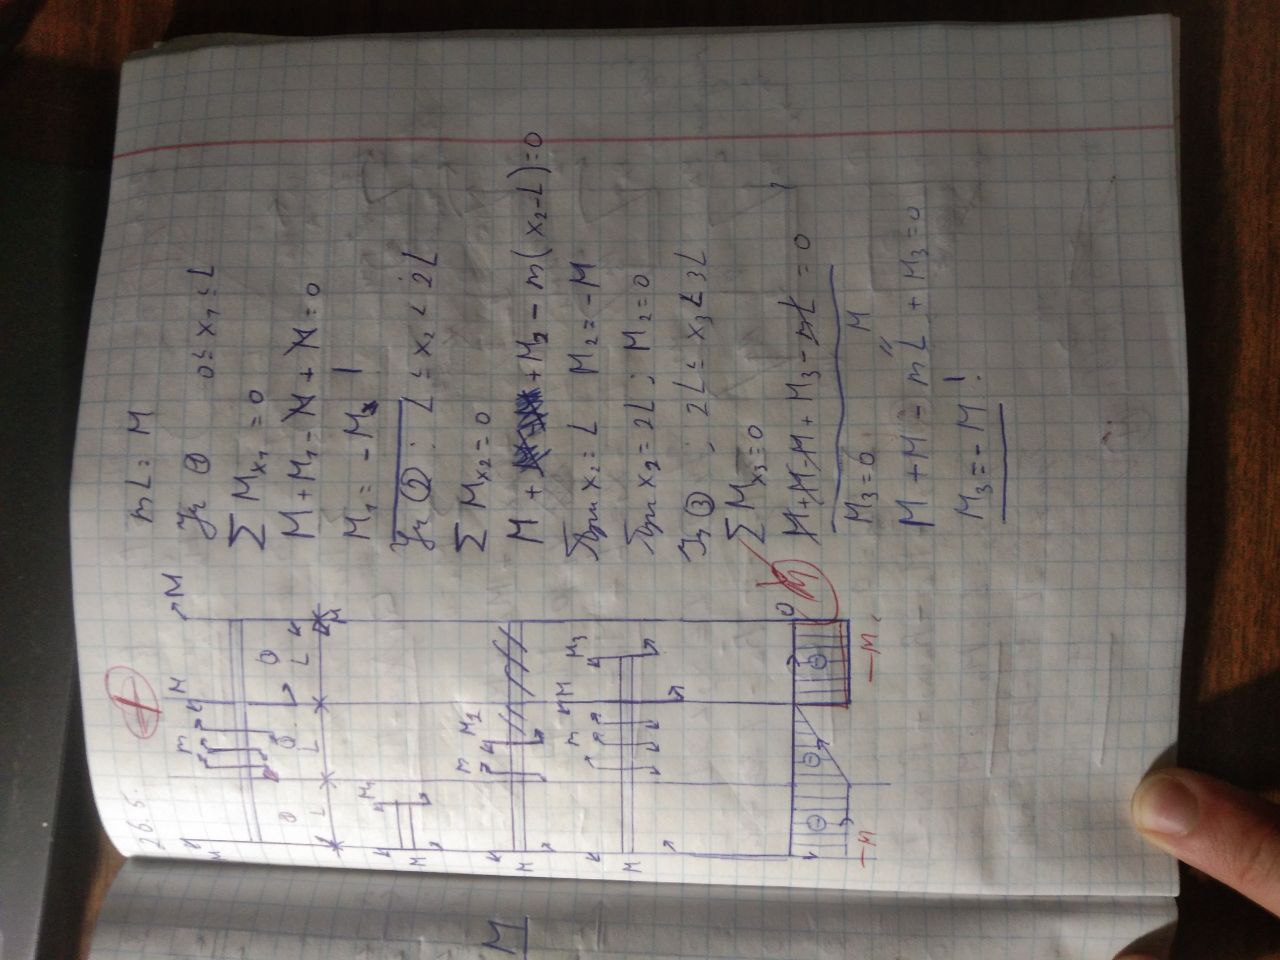 2б. 5.
mL = M
Уч ① 0 ≤ x₁ ≤ L
∑ Mx₁ = 0
M + M₁ - M + M = 0
M₁ = -M !
Уч ② : L ≤ x₂ ≤ 2L
∑ Mx₂ = 0
M + M₂ - m(x₂-L) = 0
При x₂ = L M₂ = -M
При x₂ = 2L ; M₂ = 0
Уч ③ ; 2L ≤ x₃ ≤ 3L
∑ Mx₃ = 0
M + M - M + M₃ - mL = 0
M₃ = 0
M
M + M - mL + M₃ = 0
M₃ = -M !
M m M M
① ② ③
L L L M
M M₁
M m M₂
M m M M₃
0
M
⊖ ⊖ ⊖
-M -M
M